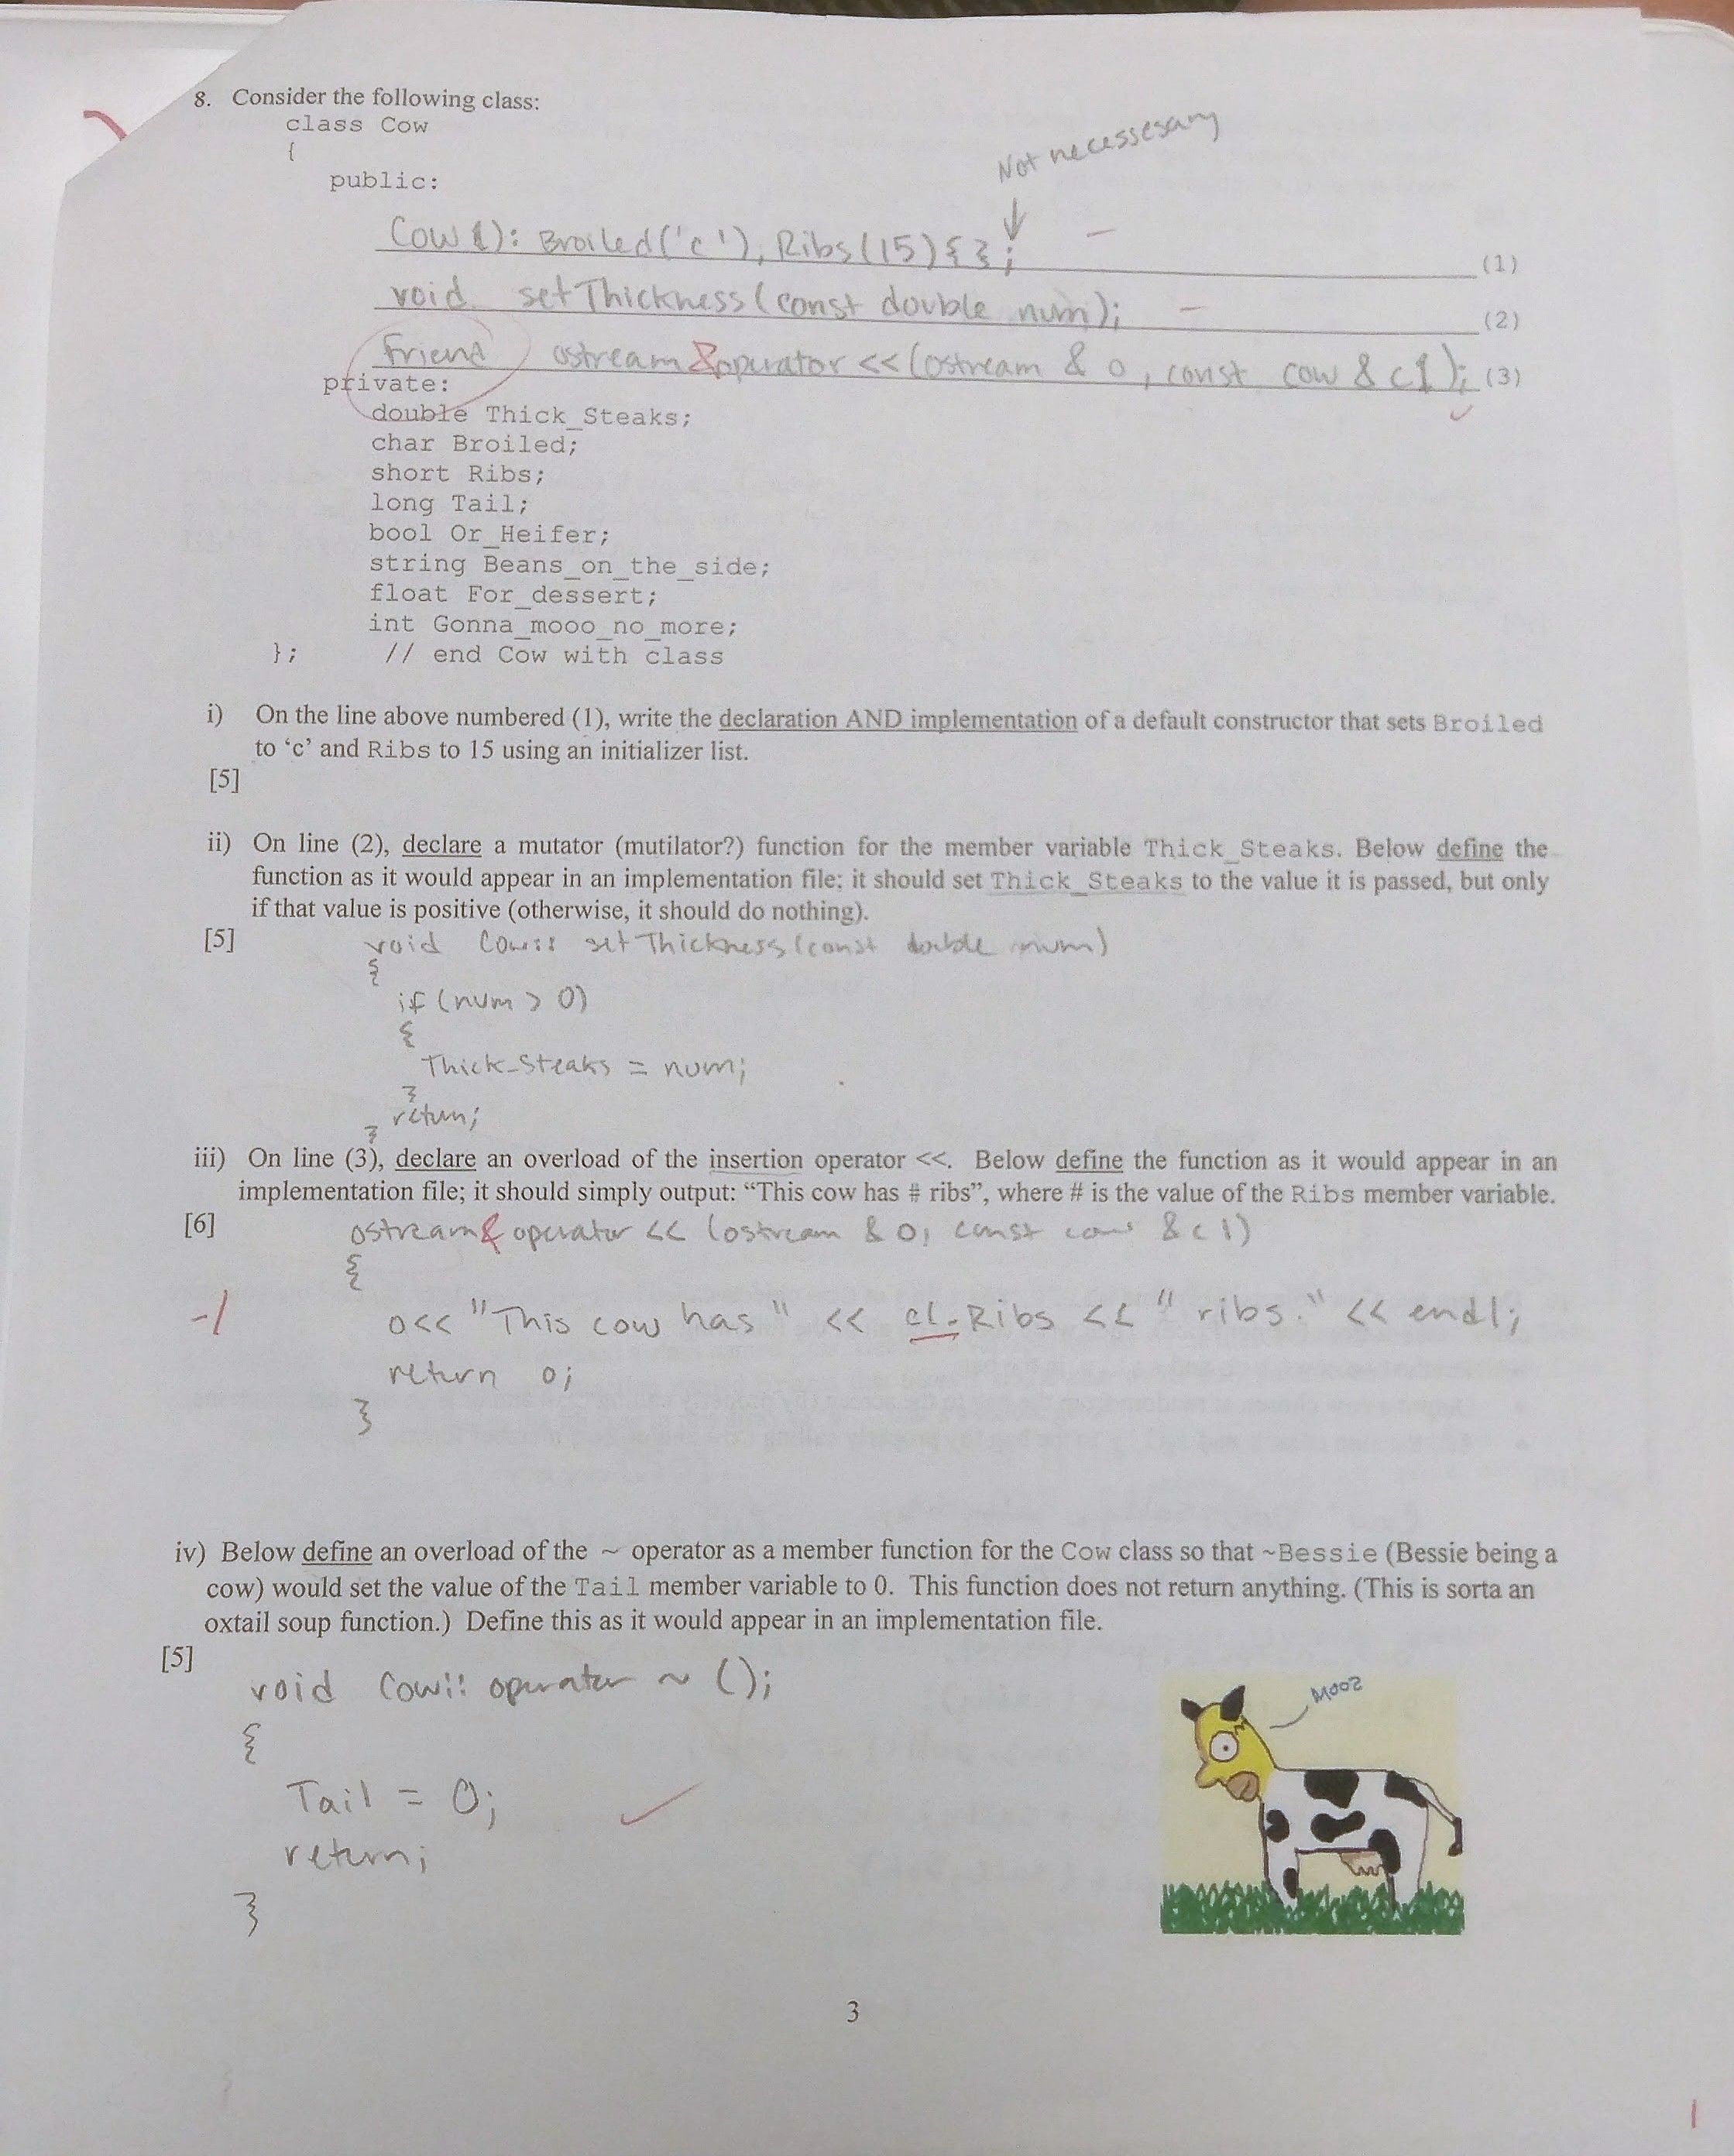 8. Consider the following class:
class Cow
{
public:
Not necessesary
Cow(): Broiled('c'), Ribs(15){}; (1)
void setThickness(const double num); (2)
friend ostream &operator <<(ostream & o, const cow & c1); (3)
private:
double Thick_Steaks;
char Broiled;
short Ribs;
long Tail;
bool Or_Heifer;
string Beans_on_the_side;
float For_dessert;
int Gonna_mooo_no_more;
}; // end Cow with class
i) On the line above numbered (1), write the declaration AND implementation of a default constructor that sets Broiled
to ‘c’ and Ribs to 15 using an initializer list.
[5]
ii) On line (2), declare a mutator (mutilator?) function for the member variable Thick_Steaks. Below define the
function as it would appear in an implementation file; it should set Thick_Steaks to the value it is passed, but only
if that value is positive (otherwise, it should do nothing).
[5] void Cow:: setThickness(const double num)
{
if (num > 0)
{
Thick_Steaks = num;
}
return;
}
iii) On line (3), declare an overload of the insertion operator <<. Below define the function as it would appear in an
implementation file; it should simply output: “This cow has # ribs”, where # is the value of the Ribs member variable.
[6] ostream& operator << (ostream & o, const cow & c1)
{
-1 o<< "This cow has" << c1.Ribs << " ribs." << endl;
return o;
}
iv) Below define an overload of the ~ operator as a member function for the Cow class so that ~Bessie (Bessie being a
cow) would set the value of the Tail member variable to 0. This function does not return anything. (This is sorta an
oxtail soup function.) Define this as it would appear in an implementation file.
[5]
void Cow:: operator ~ ();
{
Tail = 0;
return;
}
3